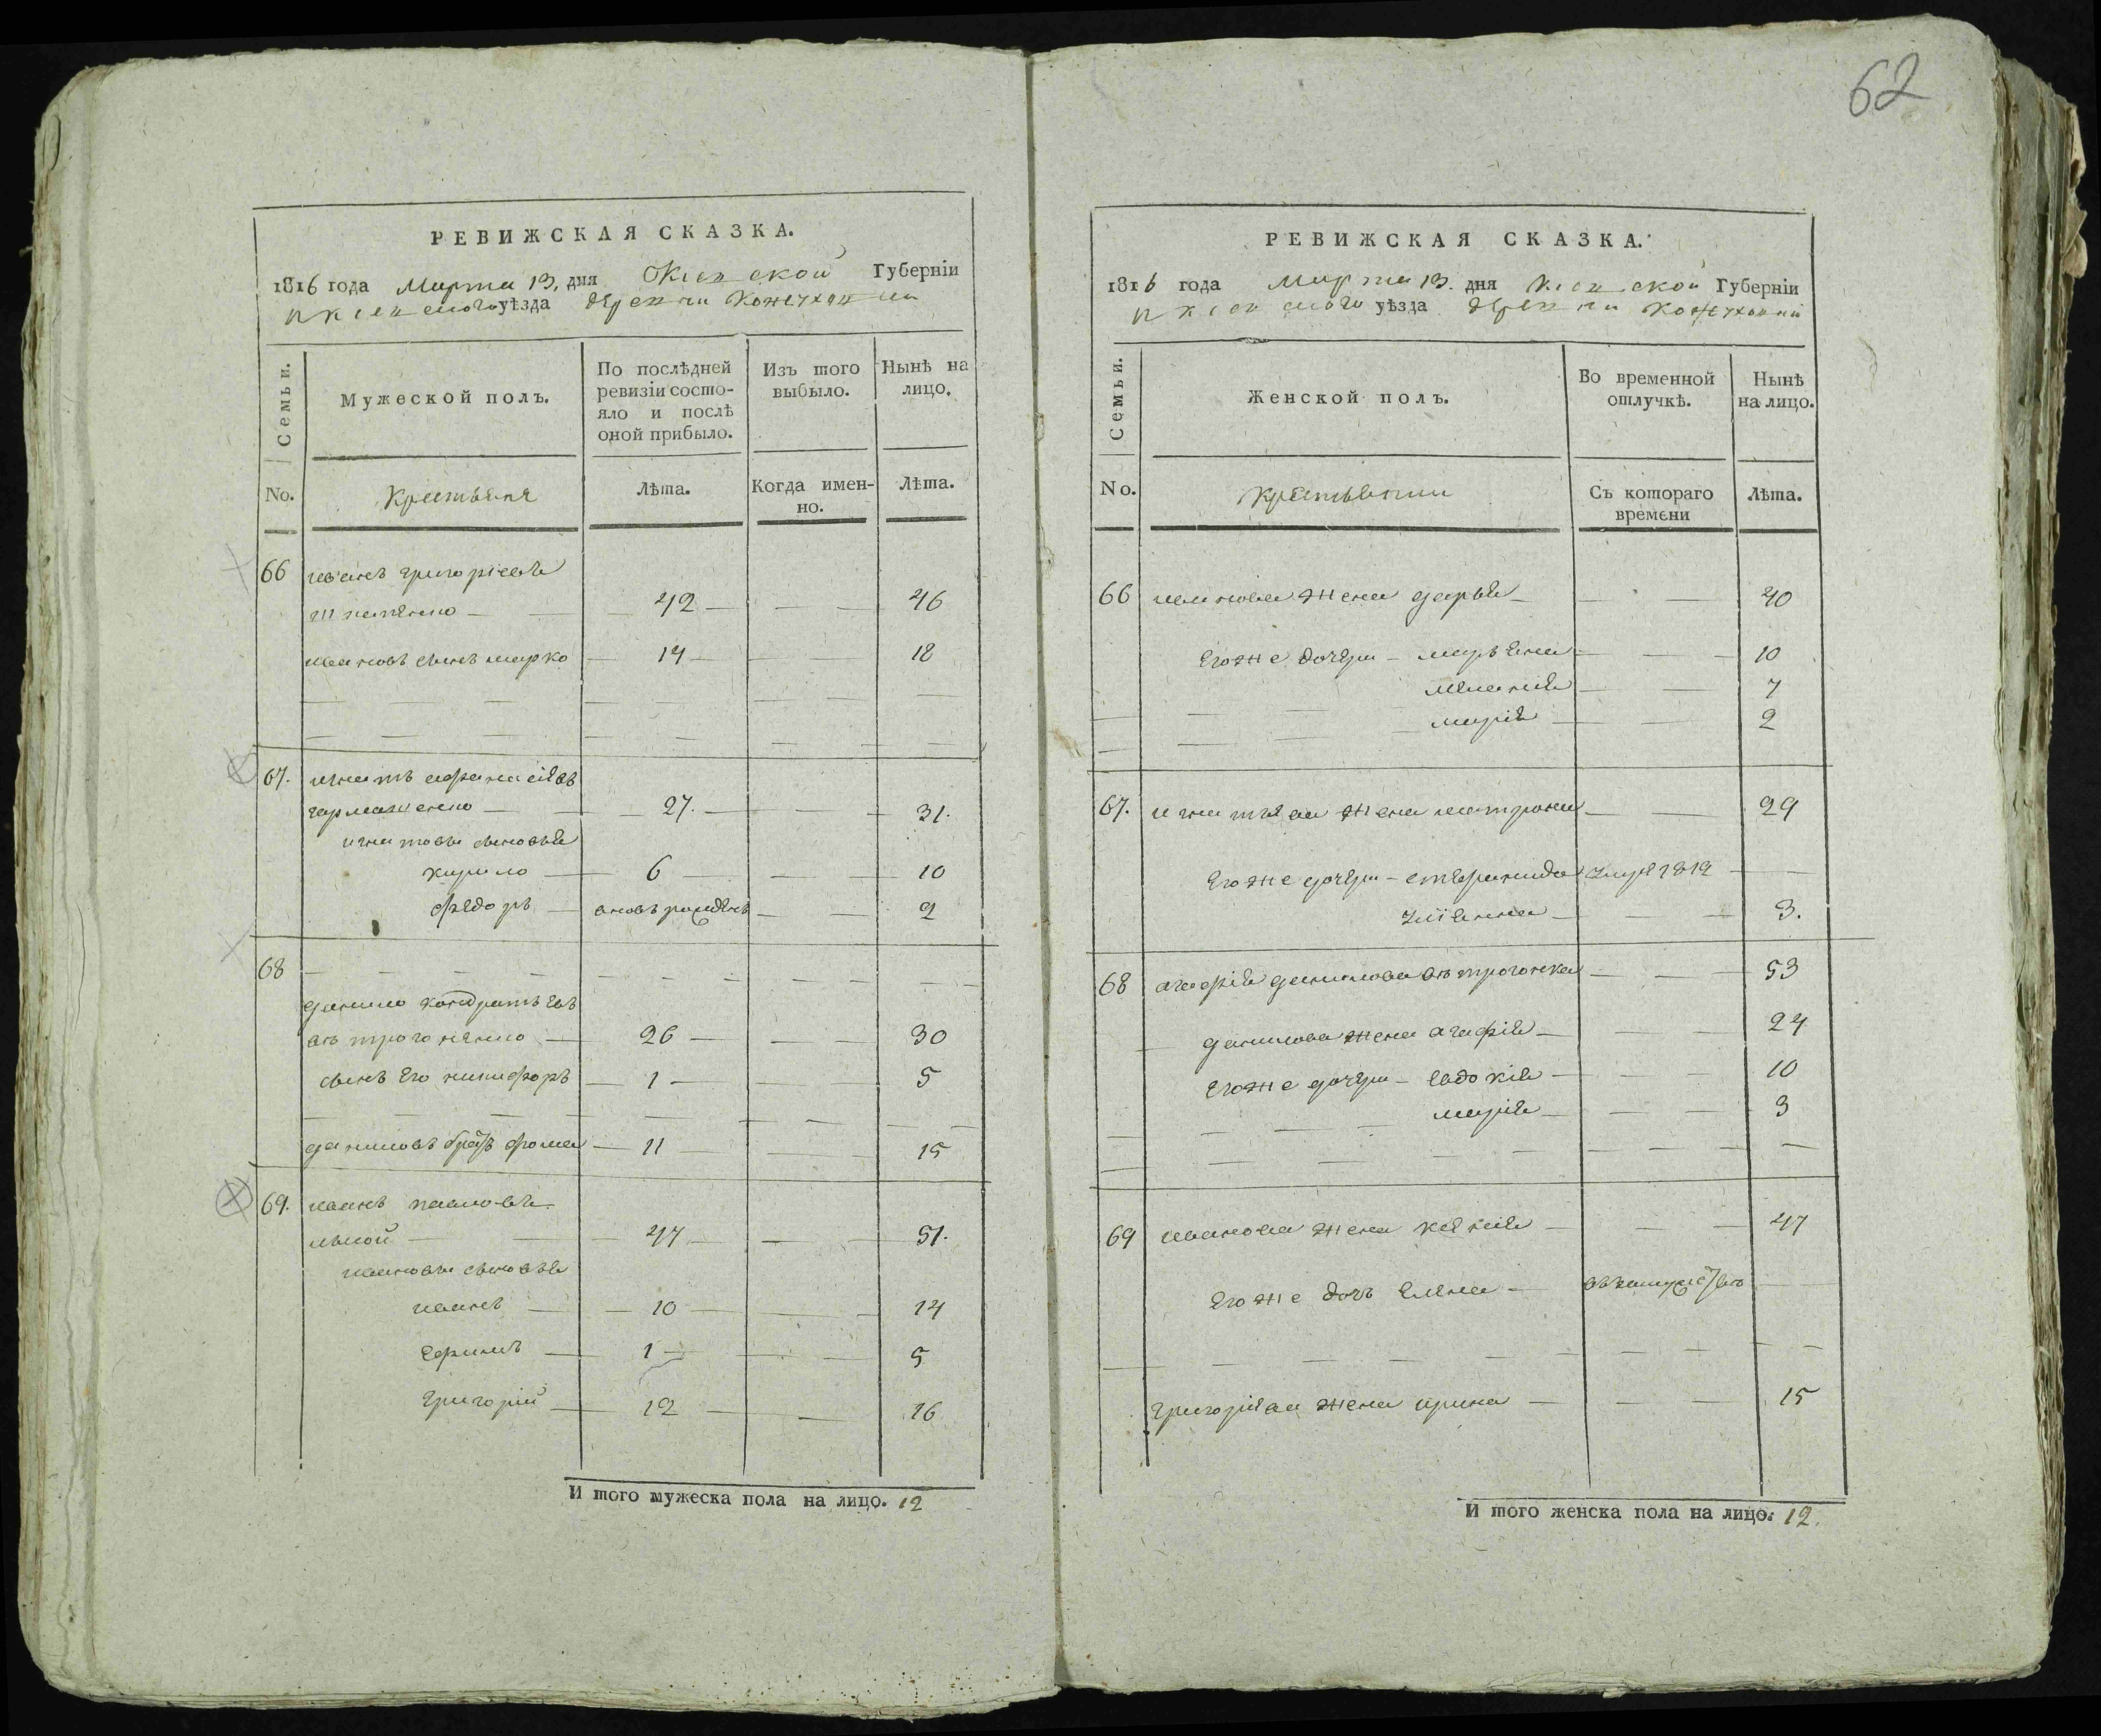 62
РЕВИЖСКАЯ СКАЗКА.
1816 года Марта 13. дня Киевской Губерніи
и Киевского уѣзда деревни Кожуховки
Семьи.
Мужеской полъ.
По послѣдней ревизіи состояло и послѣ оной прибыло.
Изъ того выбыло.
Нынѣ на лицо.
No. Крестьяне Лѣта. Когда именно. Лѣта.
66 иванъ григоріевъ
42 46
ивановъ сынъ марко 14 18
67. игнатъ афанасіевъ
27. 31.
игнатовы сыновья
кирило 6 10
федоръ вновь рожденъ 2
68
данило кондратьевъ
26 30
сынъ его никифоръ 1 5
даниловъ братъ фома 11 15
69. иванъ павловъ
47 51.
ивановы сыновья
иванъ 10 14
ефимъ 1 5
григорій 12 16
И того мужеска пола на лицо. 12
РЕВИЖСКАЯ СКАЗКА.
1816 года Марта 13. дня Киевской Губерніи
и Киевского уѣзда деревни Кожуховки
Семьи.
Женской полъ.
Во временной отлучкѣ.
Нынѣ на лицо.
No. Крестьянки Съ котораго времени Лѣта.
66 иванова жена дарья 40
его же дочери марьяна 10
меланія 7
марія 2
67. игнатьева жена матрона 29
его же дочери 1812
3.
68 агафія данилова 53
данилова жена агафія 24
его же дочери евдокія 10
марія 3
69 иванова жена ксенія 47
его же дочь елена въ замужствѣ
григоріева жена ирина 15
И того женска пола на лицо: 12.